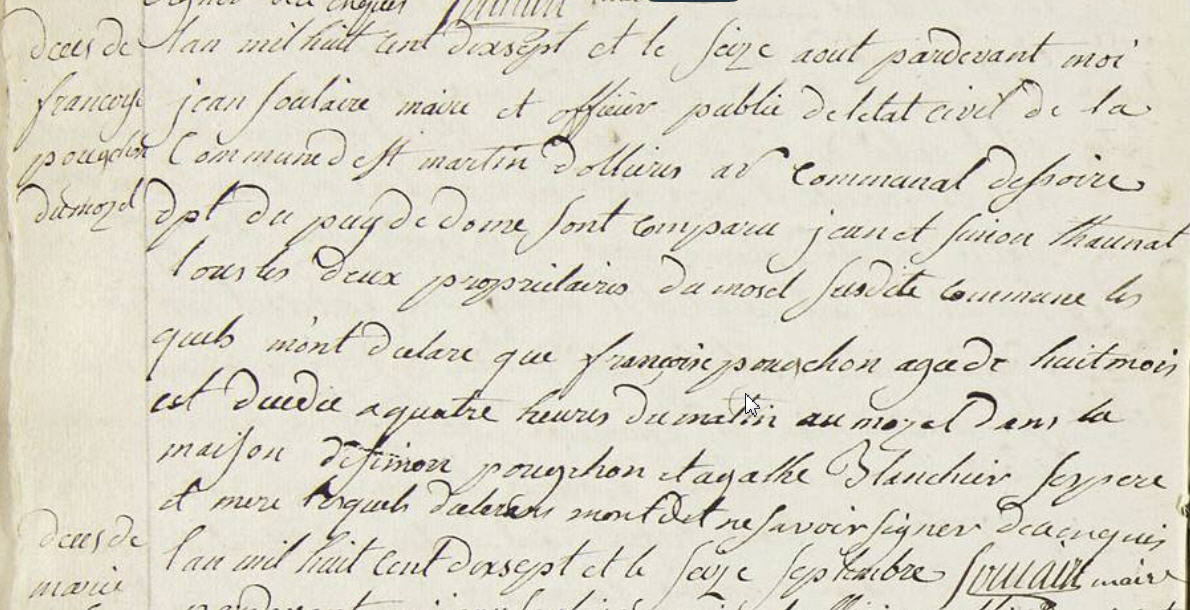 signer de ce enquis Soulair
deces de
francoise
pouychon
du mozel
lan mil huit cent dixsept et le seize aout pardevant moi
jean soulaire maire et officier public de letat civil de la
Commune de st martin dollieres ar communal dessoire
dpt du puy de dome sont comparu jean et simon thaunat
tous les deux proprietaires du mosel susdite commune les
quels m'ont declare que françoise pouychon agee de huit mois
est decedee a quatre heures du matin au mozel dans la
maison de simon pouychon et agathe Blancheir ses pere
et mere lesquels declarans mont dit ne savoir signer de ce enquis
Soulair maire
deces de
marie
lan mil huit cent dixsept et le seize septembre
pardevant